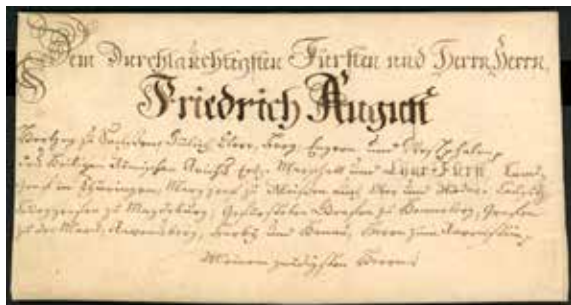 Dem Durchlauchtigsten Fürsten und Herrn, Herrn,
Friedrich August
Hertzog zu Sachsen, Jülich, Cleve, Berg, Engern und Westphalen,
des Heiligen Römischen Reichs Ertz-Marschall und Chur-Fürst, Land-
graf in Thüringen, Marggraf zu Meißen auch Ober und Nieder-Lausitz,
Burggrafen zu Magdeburg, Gefürsteter Grafen zu Henneberg, Grafen
zu der Marck, Ravensberg, Barby und Hanau, Herrn zum Ravenstein,
Meinem gnädigsten Herrn